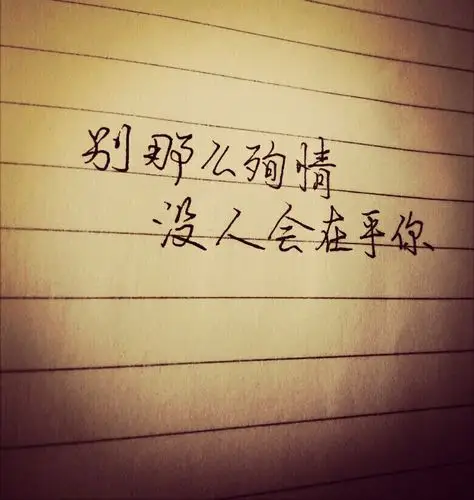 别那么殉情
没人会在乎你